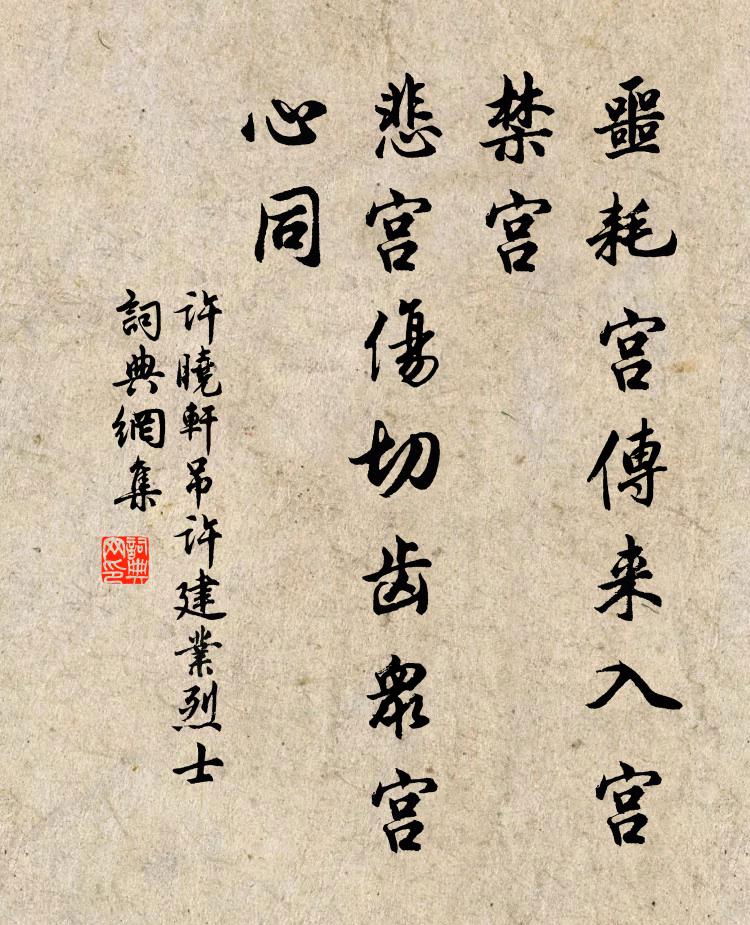 噩耗宫傳来入宫
禁宫
悲宫傷切齿衆宫
心同
许曉軒吊许建業烈士
詞典網集
詞典
网印